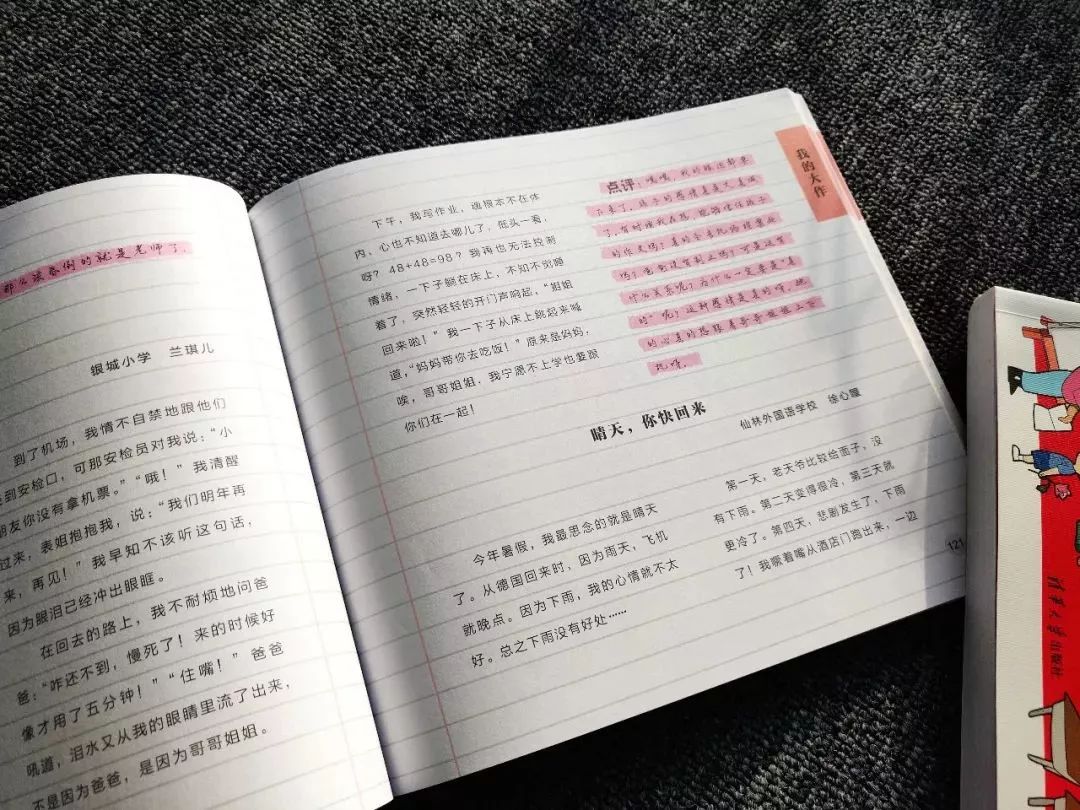 那么该吞倒的就是老师了。
银城小学 兰琪儿
到了机场，我情不自禁地跟他们
到安检口，可那安检员对我说：“小
朋友你没有拿机票。”“哦！”我清醒
过来，表姐抱抱我，说：“我们明年再
来，再见！”我早知不该听这句话，
因为眼泪已经冲出眼眶。
在回去的路上，我不耐烦地问爸
爸：“咋还不到，慢死了！来的时候好
像才用了五分钟！”“住嘴！”爸爸
吼道，泪水又从我的眼睛里流了出来，
不是因为爸爸，是因为哥哥姐姐。
下午，我写作业，魂根本不在体
内，心也不知道去哪儿了，低头一看，
呀？48+48=98？我再也无法控制
情绪，一下子躺在床上，不知不觉睡
着了，突然轻轻的开门声响起，“姐姐
回来啦！”我一下子从床上跳起来喊
道，“妈妈带你去吃饭！”原来是妈妈，
唉，哥哥姐姐，我宁愿不上学也要跟
你们在一起！
我的大作
点评：嘿嘿，我的眼泪都要
下来了，孩子的感情真善又真诚
了。有时候我在想，能够信任孩子
的作文吗？真的会去机场接票
吗？爸爸没有制止吗？可是这有
什么关系呢？为什么一定要是“真
的”呢？这种感情是真的呀，她
的心真的想跟着哥哥姐姐上
机呀。
晴天，你快回来
仙林外国语学校 徐心瞳
今年暑假，我最思念的就是晴天
了。从德国回来时，因为雨天，飞机
就晚点。因为下雨，我的心情就不太
好。总之下雨没有好处……
第一天，老天爷比较给面子，没
有下雨。第二天变得很冷，第三天就
更冷了。第四天，悲剧发生了，下雨
了！我噘着嘴从酒店门跑出来，一边
121
清华大学出版社